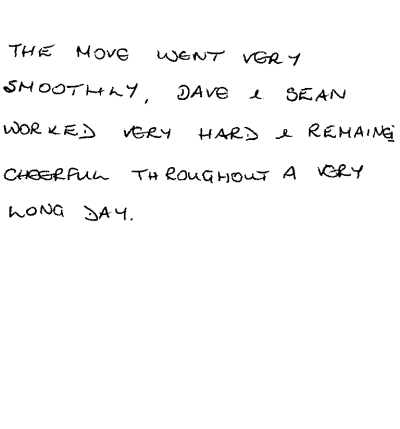 THE MOVE WENT VERY
SMOOTHLY, DAVE & SEAN
WORKED VERY HARD & REMAING
CHEERFULL THROUGHOUT A VERY
LONG DAY.